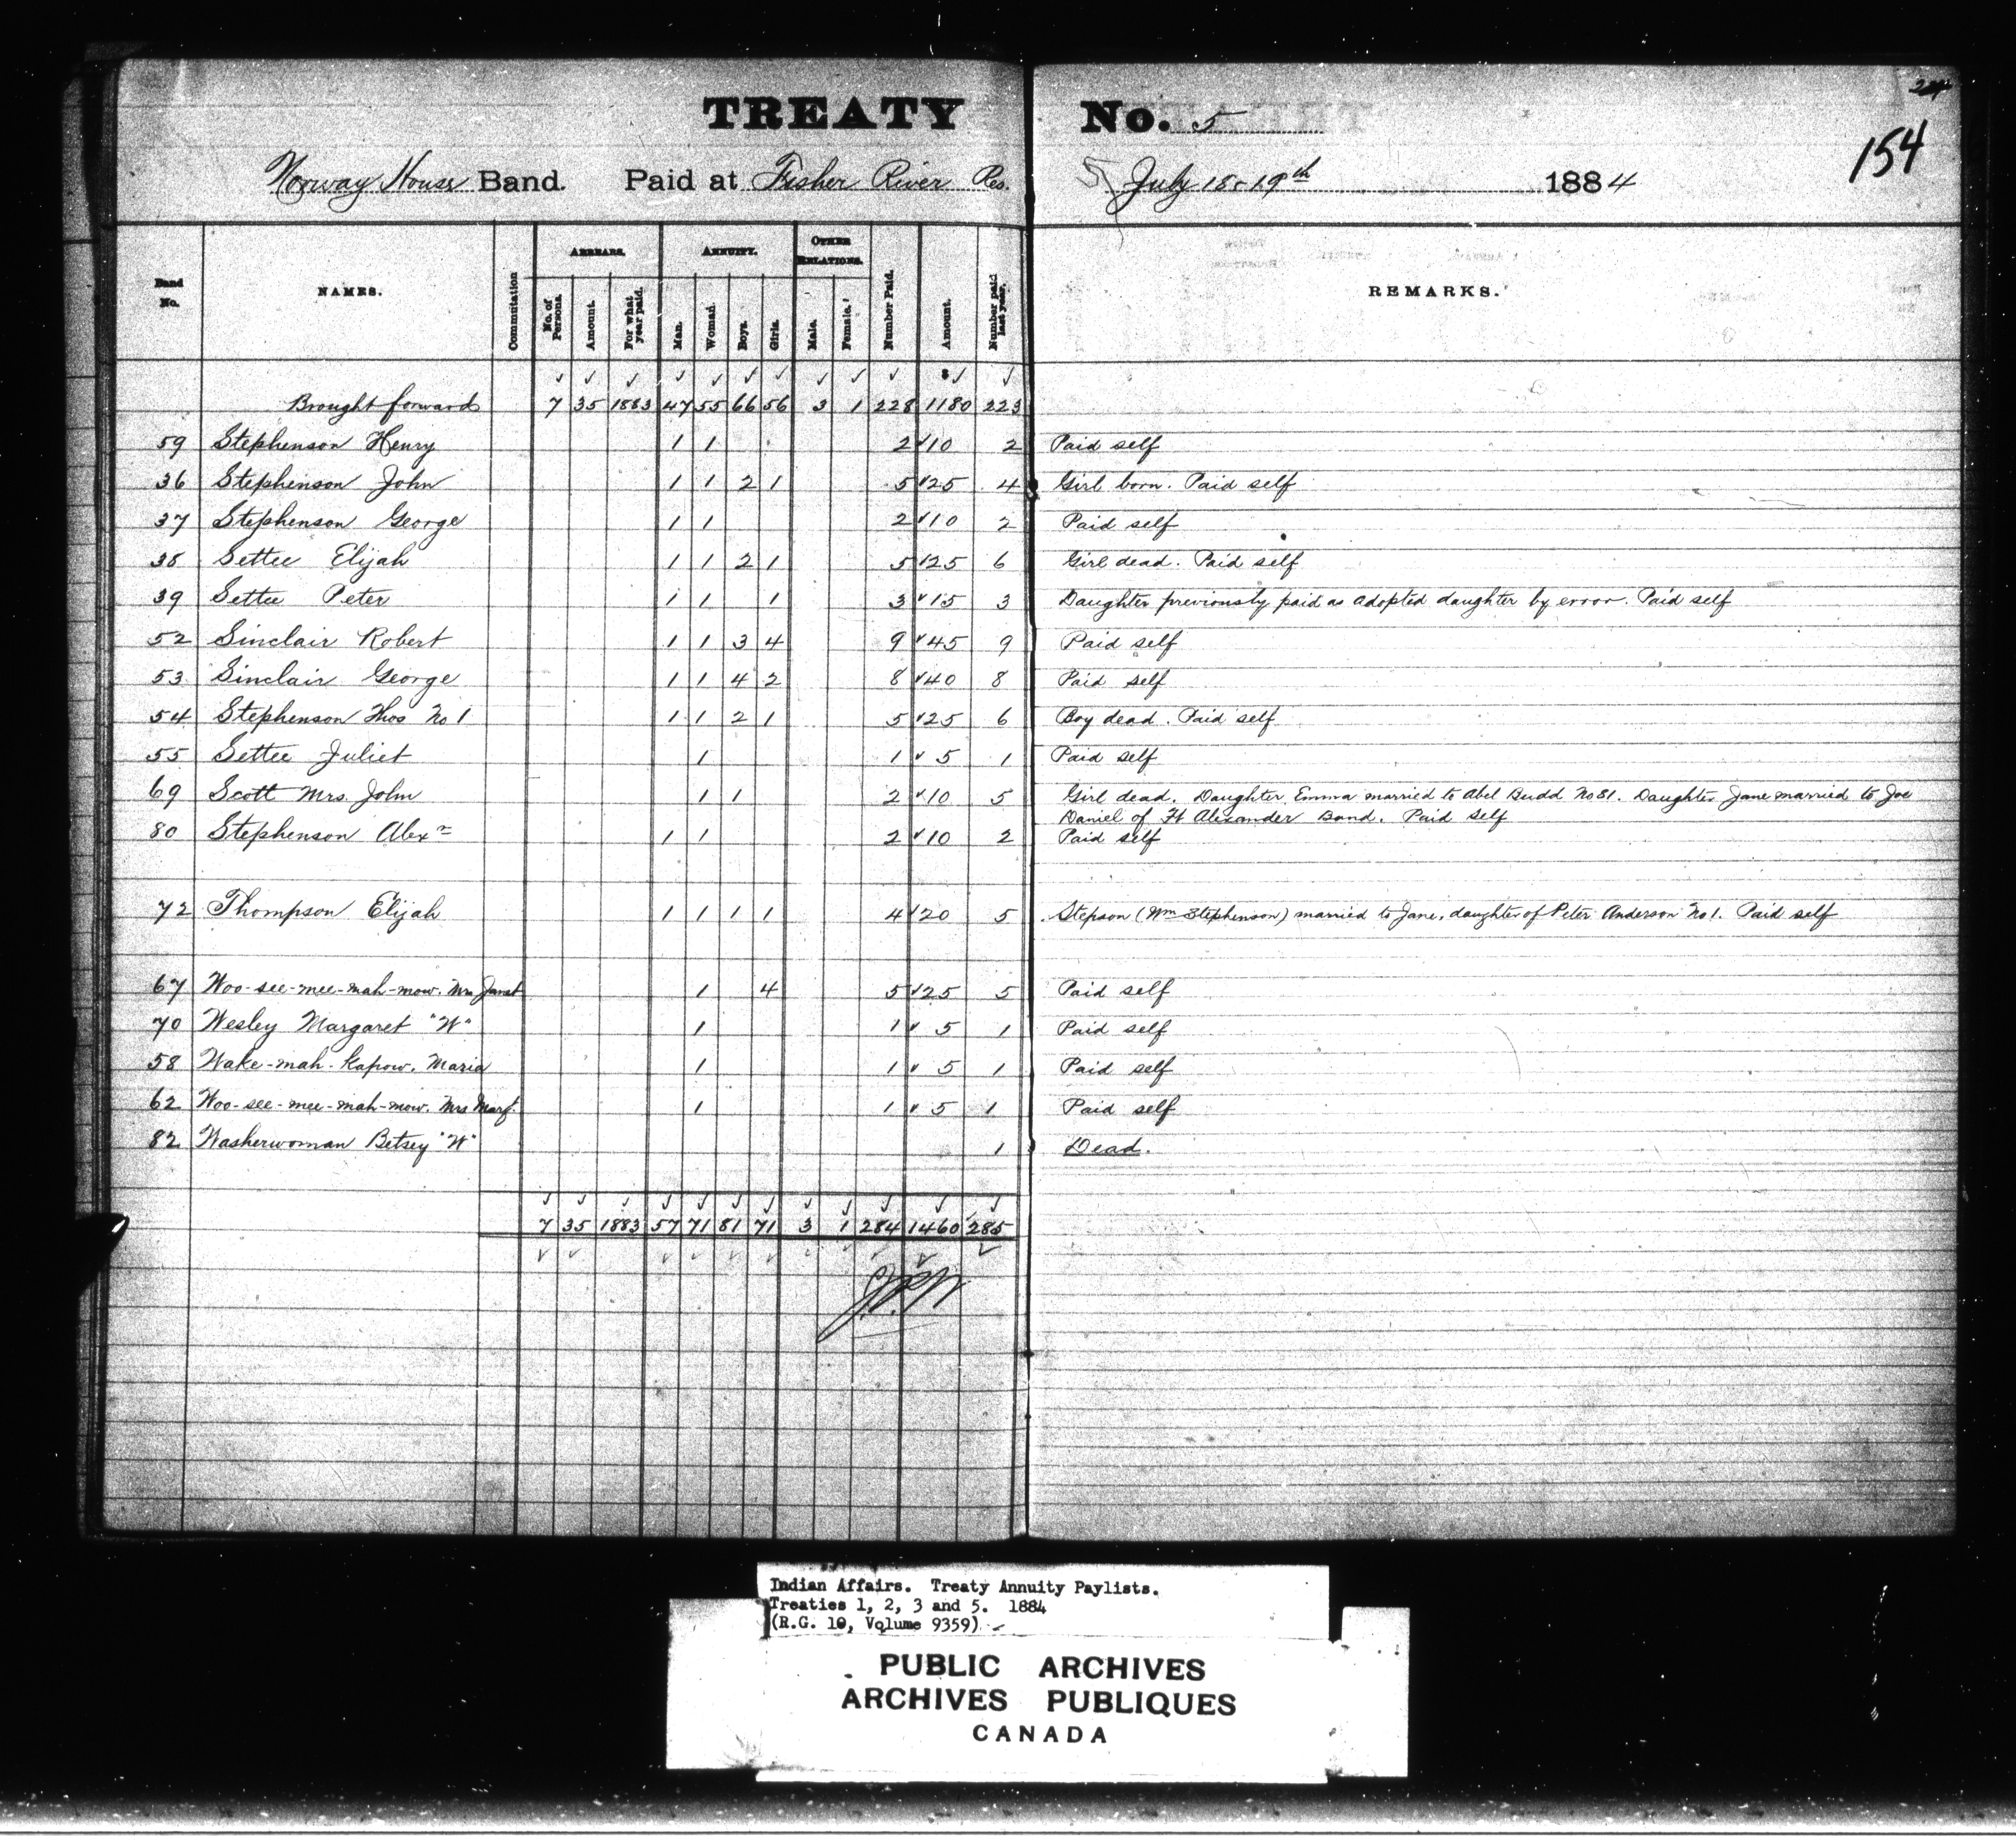 24
TREATY No. 5
154
Norway House Band. Paid at Fisher River Res. July 18-19th 1884
Band No. NAMES. Commutation ARREARS. No. of Persons. Amount. For what year paid. ANNUITY. Man. Woman. Boys. Girls. OTHER RELATIONS. Male. Female. Number Paid. Amount. Number paid last year. REMARKS.
Brought forward 7 35 1883 47 55 66 56 3 1 228 1180 223
59 Stephenson Henry 1 1 2 10 2 Paid self
36 Stephenson John 1 1 2 1 5 25 4 Girl born. Paid self
37 Stephenson George 1 1 2 10 2 Paid self
38 Settee Elijah 1 1 2 1 5 25 6 Girl dead. Paid self
39 Settee Peter 1 1 1 3 15 3 Daughter previously paid as adopted daughter by error. Paid self
52 Sinclair Robert 1 1 3 4 9 45 9 Paid self
53 Sinclair George 1 1 4 2 8 40 8 Paid self
54 Stephenson Thos No 1 1 1 2 1 5 25 6 Boy dead. Paid self
55 Settee Juliet 1 1 5 1 Paid self
69 Scott Mrs. John 1 1 2 10 5 Girl dead. Daughter Emma married to Abel Budd No 81. Daughter Jane married to Joe
Daniel of Ft Alexander Band. Paid self
80 Stephenson Alexr 1 1 2 10 2 Paid self
72 Thompson Elijah 1 1 1 1 4 20 5 Stepson (Wm Stephenson) married to Jane, daughter of Peter Anderson No 1. Paid self
67 Woo-see-mee-mah-mow. Mrs Janet 1 4 5 25 5 Paid self
70 Wesley Margaret "W" 1 1 5 1 Paid self
58 Wake-mah-kapow. Maria 1 1 5 1 Paid self
62 Woo-see-mee-mah-mow. Mrs Margt. 1 1 5 1 Paid self
82 Washerwoman Betsey "W" 1 Dead.
7 35 1883 57 71 81 71 3 1 284 1460 285
Indian Affairs. Treaty Annuity Paylists.
Treaties 1, 2, 3 and 5. 1884
(R.G. 10, Volume 9359)
PUBLIC ARCHIVES
ARCHIVES PUBLIQUES
CANADA